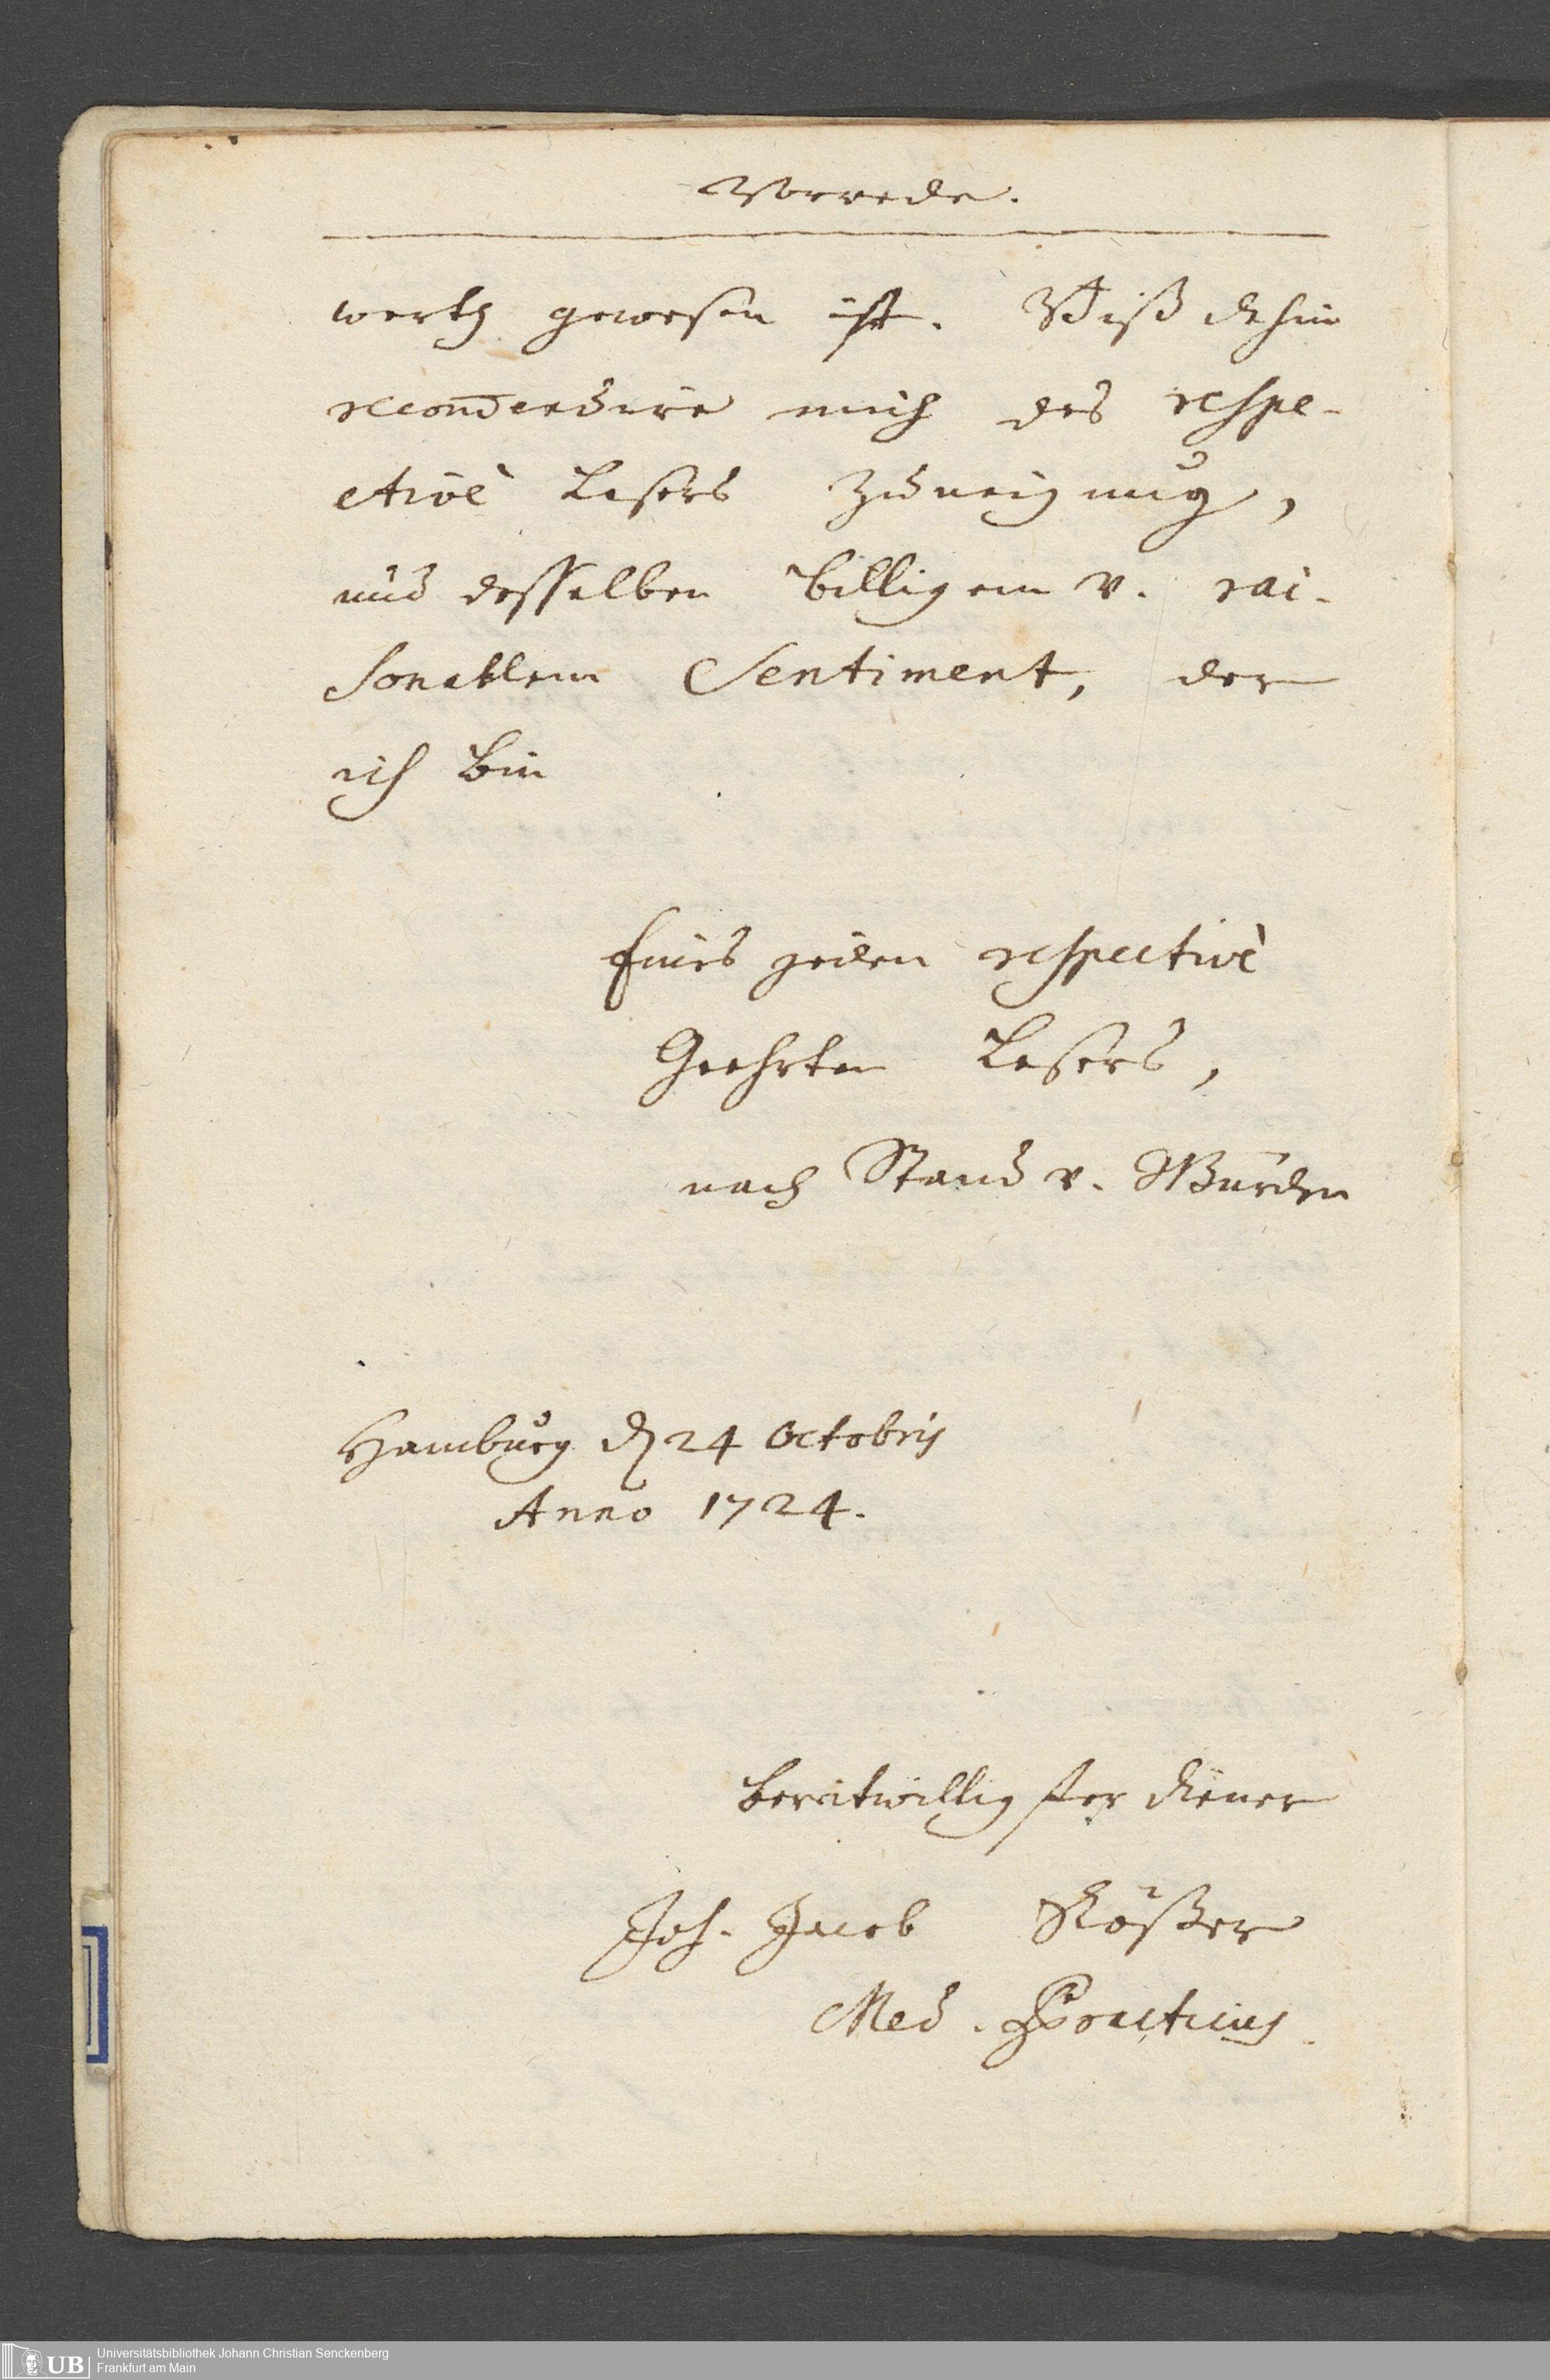 Vorrede.
werth gewesen ist. Biß dahin
recom̄endire mich des respe-
ctivè Lesers Zuneigung,
und desselben billigem v. rai-
sonablem Sentiment, der
ich bin
Eines jeden respectivè
Geehrten Lesers,
nach Stand v. Würden
Hamburg d 24 Octobris
Anno 1724.
bereitwilligster Diener
Joh. Jacob
Med. Practicus.
UB
Universitätsbibliothek Johann Christian Senckenberg
Frankfurt am Main